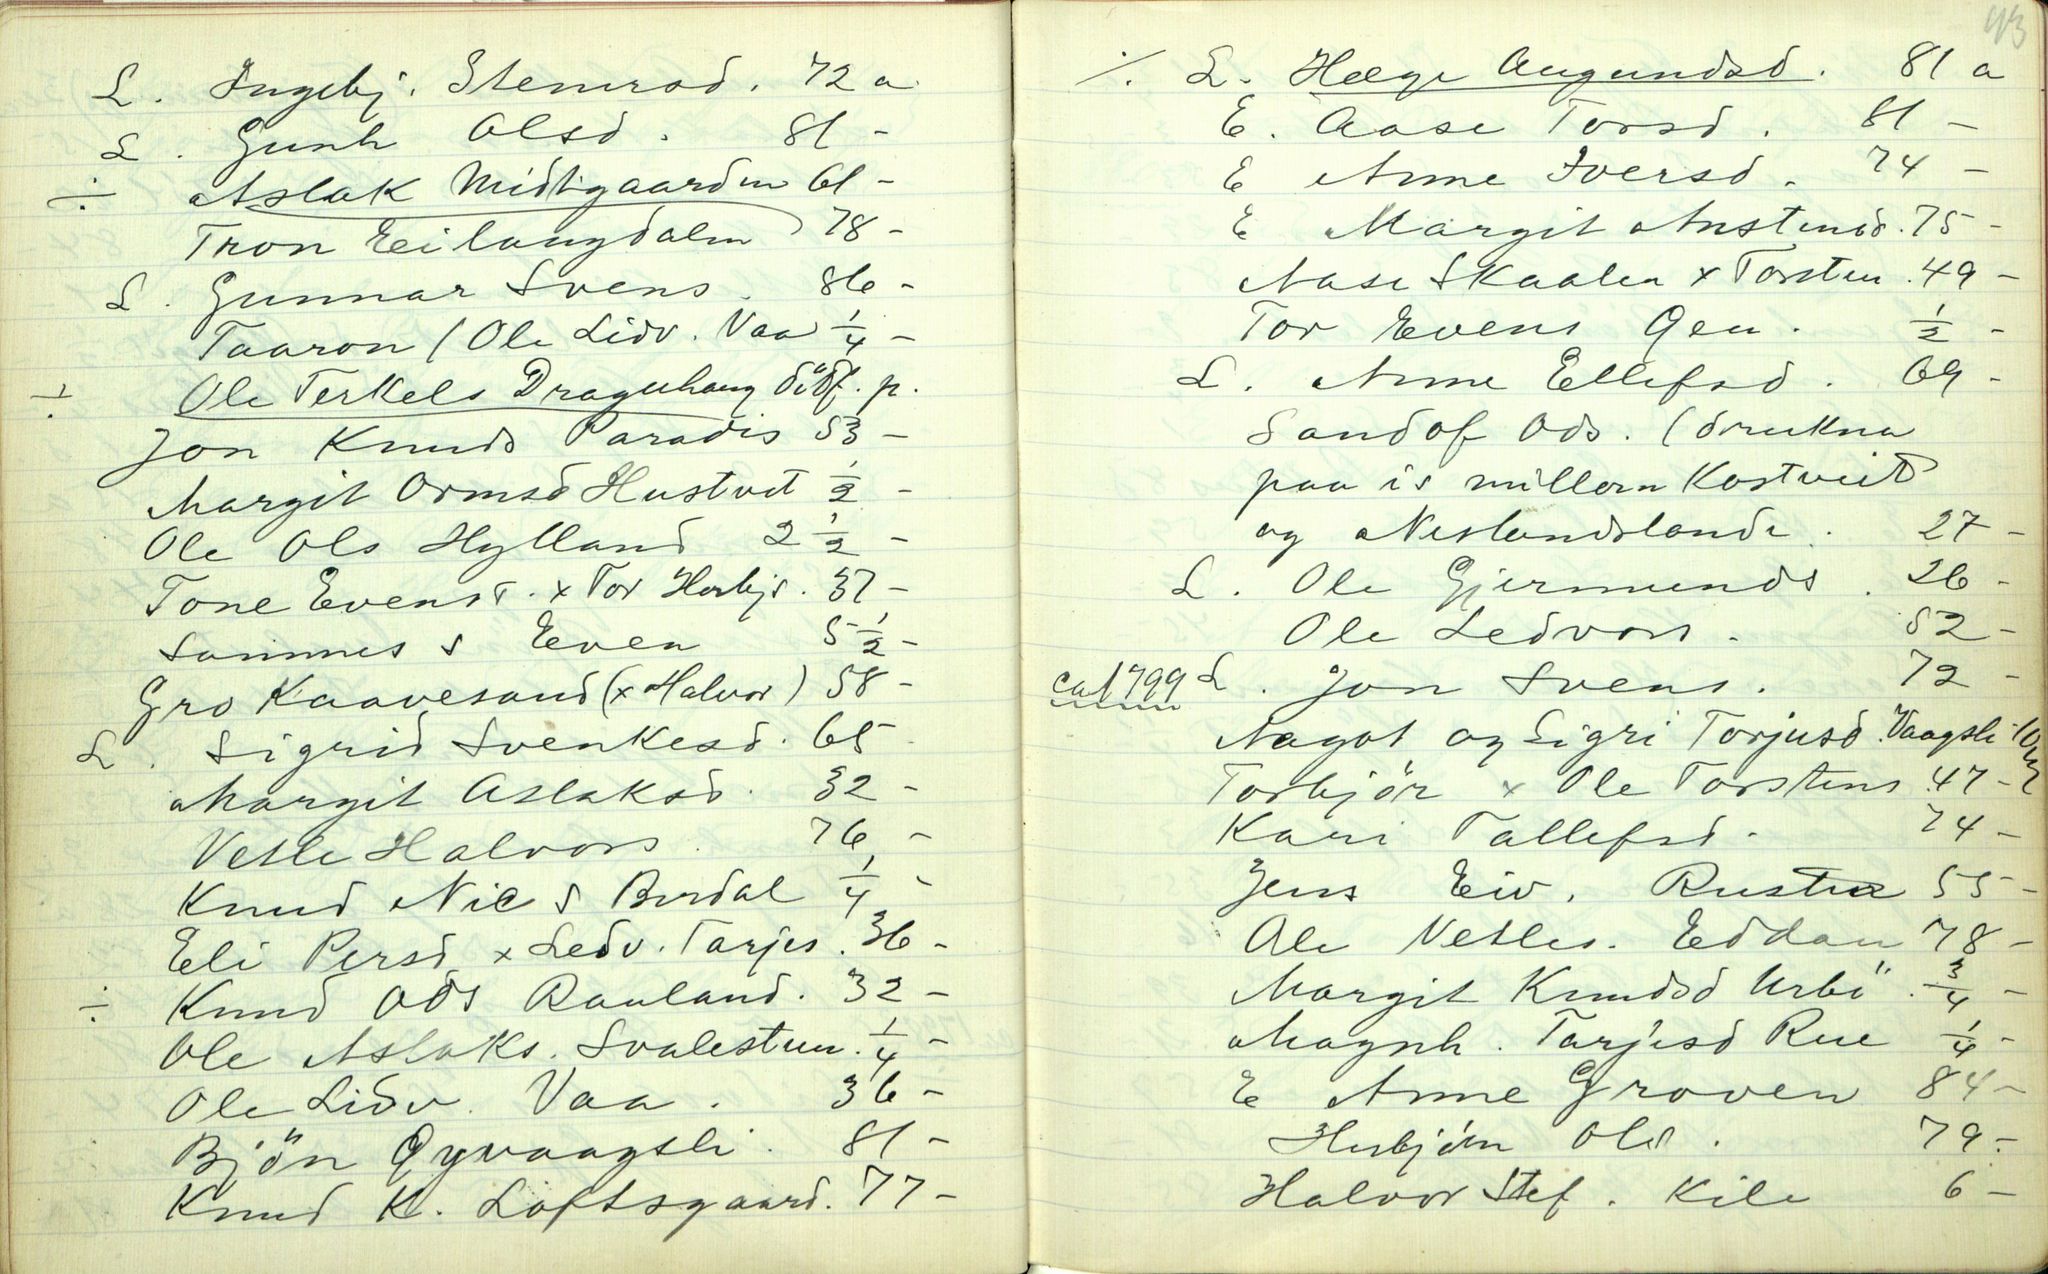 L. Ingebj. Steinersd. 72 a
L. Gunh Olsd. 81 -
÷ Aslak Midtigaarden 61 -
Tron Eilaugdalen 78 -
L. Gunnar Svens. 86 -
Taaron / Ole Lidv. Vaa 1/4 -
÷ Ole Terkels Draguhaug dödf. p.
Jon Knuds Paradis 53 -
Margit Ormsd Hustvet 1/2 -
Ole Ols Hylland 2 1/2 -
Tone Evensd. x Tor Herbjs. 37 -
Sammes s Even 5 1/2 -
Gro Kaavesand (x Halvor) 58 -
L. Sigrid Svenkesd. 65 -
Margit Aslaksd. 32 -
Vetle Halvors 76 -
Knud Nic s Burdal 1/4 -
Eli Persd x Ledv. Tarjes. 36 -
÷ Knud Ods Rauland. 32 -
Ole Aslaks. Svalestuen. 1/4 -
Ole Lidv. Vaa. 36 -
Bjön Öyvaagsli. 81 -
Knud K. Loftsgaard. 77 -
43
÷ L. Hæge Augundsd. 81 a
E. Aase Torsd. 81 -
E Anne Iversd. 74 -
E Margit Anstensd. 75 -
Aase Skaalen x Torsten. 49 -
Tor Evens Gen. 1/2 -
L. Anne Ellefsd. 69 -
Sandof Ods. (drukna
paa is millom Kostveit
og Neslandslande. 27 -
L. Ole Gjermunds. 26 -
Ole Ledvors. 52 -
ca 1799 L. Jon Svens. 72 -
Aagot og Sigri Torjusd. Vaagsli
Torbjör x Ole Torstens 47 -
Kari Tallefsd. 74 -
Jens Eiv. Rusten 55 -
Ole Vetles. Eddan 78 -
Margit Knudsd Urbö. 3/4 -
Magnh. Tarjesd Rue 1/4 -
E Anne Groven 84 -
Herbjörn Ols. 79 -
Halvor Stef. Kile 6 -